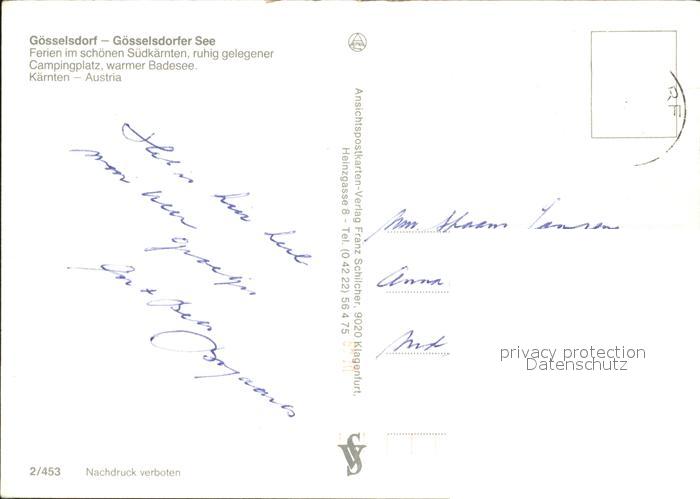 Gösselsdorf – Gösselsdorfer See
Ferien im schönen Südkärnten, ruhig gelegener
Campingplatz, warmer Badesee.
Kärnten – Austria
Het is hier heel
mooi weer
Ansichtspostkarten-Verlag Franz Schilcher, 9020 Klagenfurt,
Heinzgasse 8 - Tel. (0 42 22) 56 4 75
Jansen
Anna
privacy protection
Datenschutz
2/453 Nachdruck verboten